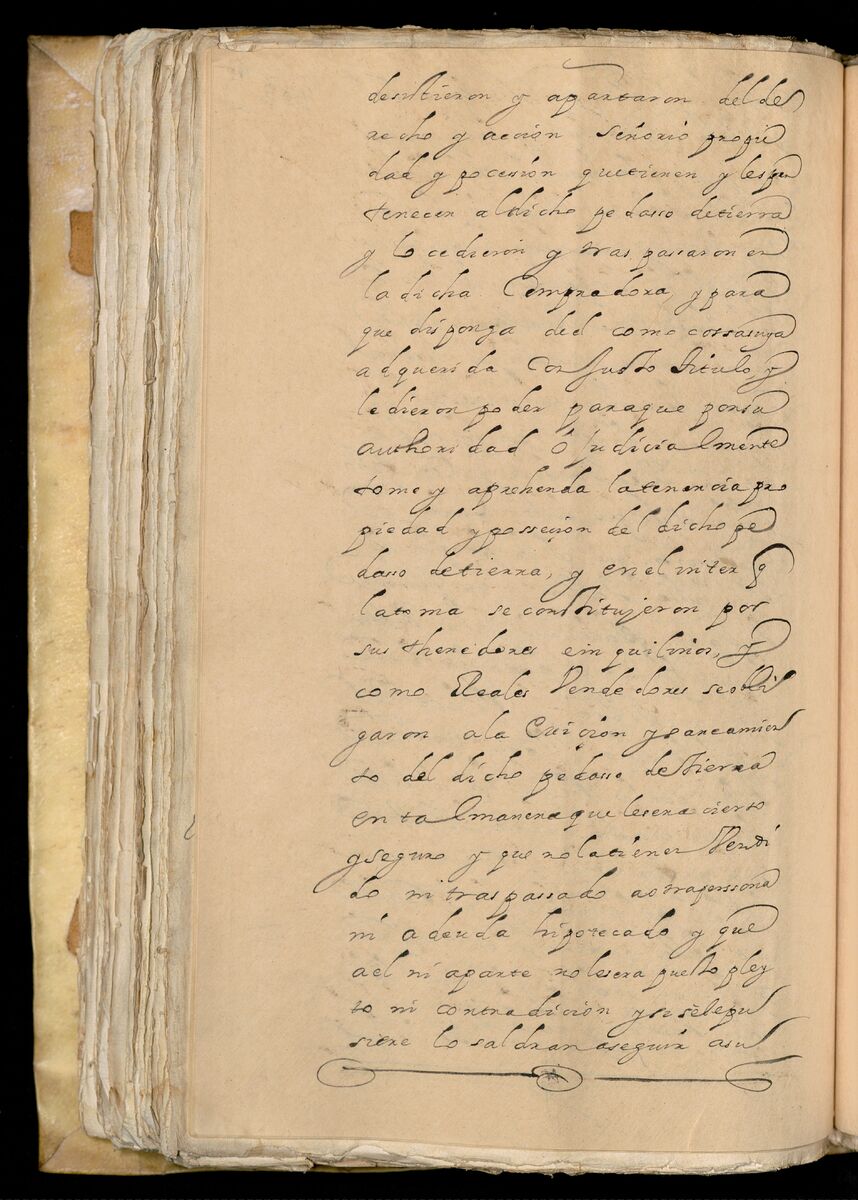 desistieron y apartaron del de
recho y acción señorio propie
dad y pocesión quetienen y les per
tenecen aldicho pedasso detierra
y lo cedieron y traspassaron en
la dicha Compradora, y para
que disponga del como cossasuya
adquerida con Justo titulo y
le dieron poder paraque porsu
authoridad ó Judicialmente
tome y aprehenda latenencia pro
piedad yposseçion del dicho pe
dasso detierra, y en el inter q
latoma se constitujeron por
sus thenedores einquilinos, y
como Reales Vendedores seobli
garon ala Eviçión ysaneamien
to del dicho pedasso detierra
en tal manera que lesera cierto
yseguro y que nolatienen Vendi
do ni traspassado aotraperssona
ni adeuda hipotecado y que
ael ni aparte nolesera puesto pley
to ni contradición ysiselepu
siere lo saldran aseguir asu